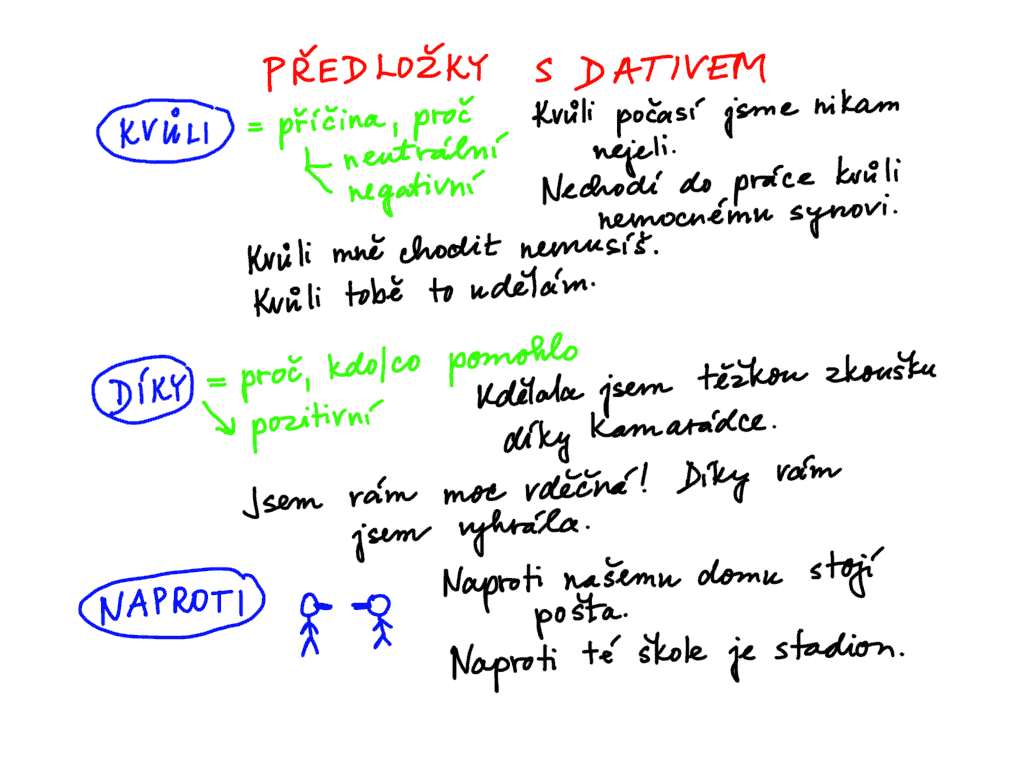 PŘEDLOŽKY S DATIVEM
KVŮLI = příčina, proč
neutrální
negativní
Kvůli počasí jsme nikam
nejeli.
Nechodí do práce kvůli
nemocnému synovi.
Kvůli mně chodit nemusíš.
Kvůli tobě to udělám.
DÍKY = proč, kdo/co pomohlo
pozitivní
Udělala jsem těžkou zkoušku
díky kamarádce.
Jsem vám moc vděčná! Díky vám
jsem vyhrála.
NAPROTI
Naproti našemu domu stojí
pošta.
Naproti té škole je stadion.